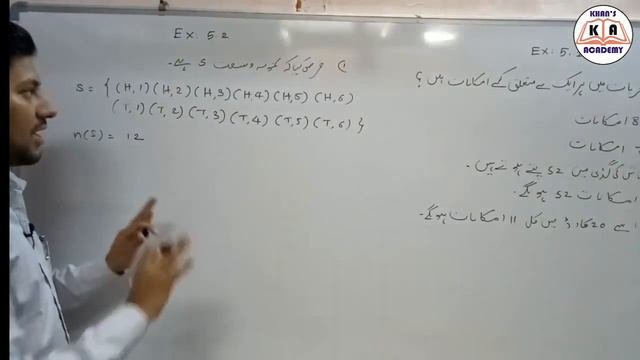 KHAN'S
K A
ACADEMY
Ex: 5.2
1) فرض کیا کہ نمونہ وسعت S ہے۔
S = { (H,1) (H,2) (H,3) (H,4) (H,5) (H,6)
(T,1) (T,2) (T,3) (T,4) (T,5) (T,6) }
n(S) = 12
Ex: 5.
میں ہر ایک سے متعلق کے امکانات ہیں ؟
8 امکانات
امکانات
کی گڈی میں 52 پتے ہوتے ہیں۔
امکانات 52 ہونگے۔
سے 20 کارڈ میں کل 11 امکانات ہونگے۔